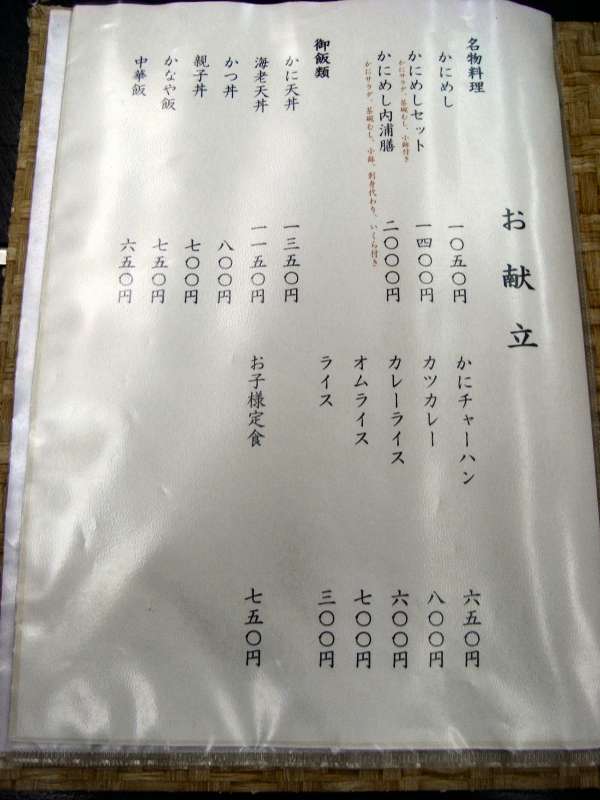 お献立
名物料理
かにめし 一〇五〇円
かにめしセット 一四〇〇円
かにサラダ、茶碗むし、小鉢付き
かにめし内浦膳 二〇〇〇円
かにサラダ、茶碗むし、小鉢、刺身代わり、いくら付き
御飯類
かに天丼 一三五〇円
海老天丼 一一五〇円
かつ丼 八〇〇円
親子丼 七〇〇円
かなや飯 七五〇円
中華飯 六五〇円
かにチャーハン 六五〇円
カツカレー 八〇〇円
カレーライス 六〇〇円
オムライス 七〇〇円
ライス 三〇〇円
お子様定食 七五〇円